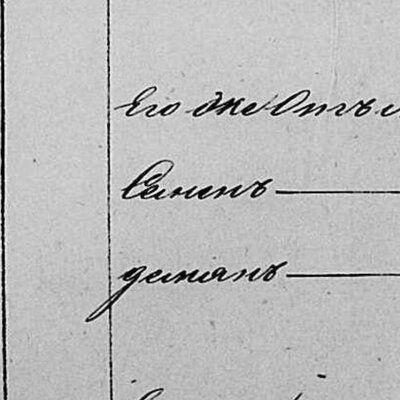 Его же Отъ
Семенъ
демянъ